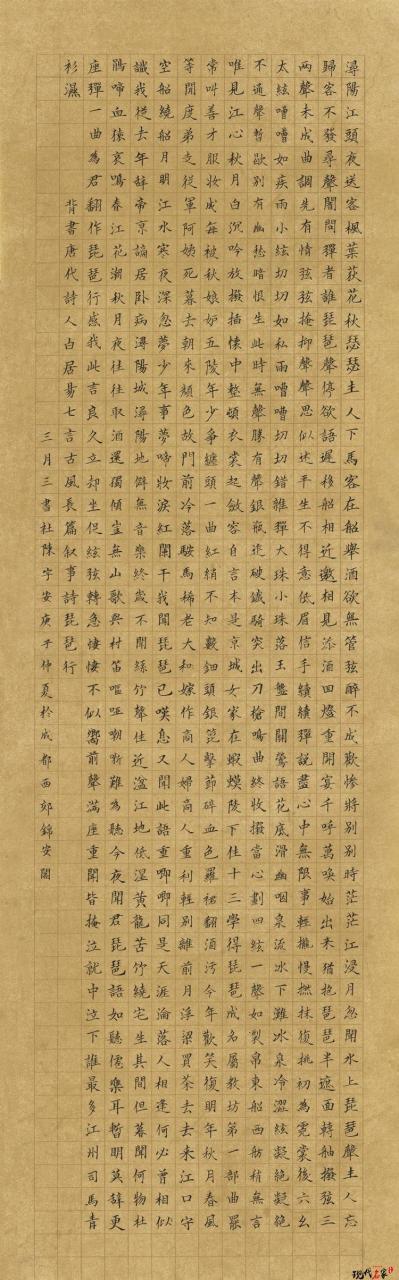 潯陽江頭夜送客楓葉荻花秋瑟瑟主人下馬客在船舉酒欲無管弦醉不成歡慘將別別時茫茫江浸月忽聞水上琵琶聲主人忘
歸客不發尋聲闇問彈者誰琵琶聲停欲語遲移船相近邀相見添酒回燈重開宴千呼萬喚始出來猶抱琵琶半遮面轉舳撥弦三
兩聲未成曲調先有情弦弦掩抑聲聲思似述平生不得意低眉信手續續彈說盡心中無限事輕攏慢撚抹復挑初為霓裳後六幺
太絃嘈嘈如疾雨小絃切切如私雨嘈嘈切切錯雜彈大珠小珠落玉盤間關鶯語花底滑幽咽泉流冰下灘冰泉冷澀絃凝絕凝絕
不通聲暫歇別有幽愁暗恨生此時無聲勝有聲銀瓶乍破鐵騎突出刀槍鳴曲終收撥當心劃四絃一聲如裂帛東船西舫稍無言
唯見江心秋月白沉吟放撥插懷中整頓衣裳起斂容自言本是京城女家在蝦蟆陵下住十三學得琵琶成名屬教坊第一部曲罷
常叫善才服妝成每被秋娘妒五陵年少爭纏頭一曲紅綃不知數鈿頭銀篦擊節碎血色羅裙翻酒污今年歡笑復明年秋月春風
等閒度弟走從軍阿姨死暮去朝來顏色故門前冷落鞍馬稀老大和嫁作商人婦商人重利輕別離前月浮梁買茶去去來江口守
空船繞船月明江水寒夜深忽夢少年事夢啼妝淚紅闌干我聞琵琶已嘆息又聞此語重唧唧同是天涯淪落人相逢何必曾相似
識我從去年辭帝京謫居臥病潯陽城潯陽地僻無音樂終歲不聞絲竹聲住近湓江地低濕黃龍苦竹繞宅生其間但暮聞何物杜
鵑啼血猿哀鳴春江花潮秋月夜往往取酒還獨傾豈無山歌與村笛嘔啞嘲哳難為聽今夜聞君琵琶語如聽僊樂耳暫明莫辭更
座彈一曲為君翻作琵琶行感我此言良久立卻坐促絃弦轉急悽悽不似嚮前聲滿座重聞皆掩泣就中泣下誰最多江州司馬青
衫濕 背書唐代詩人白居易七言古風長篇叙事詩琵琶行
三月三書社陳宇安庚子仲夏於成都西郊錦安閣
現代名家